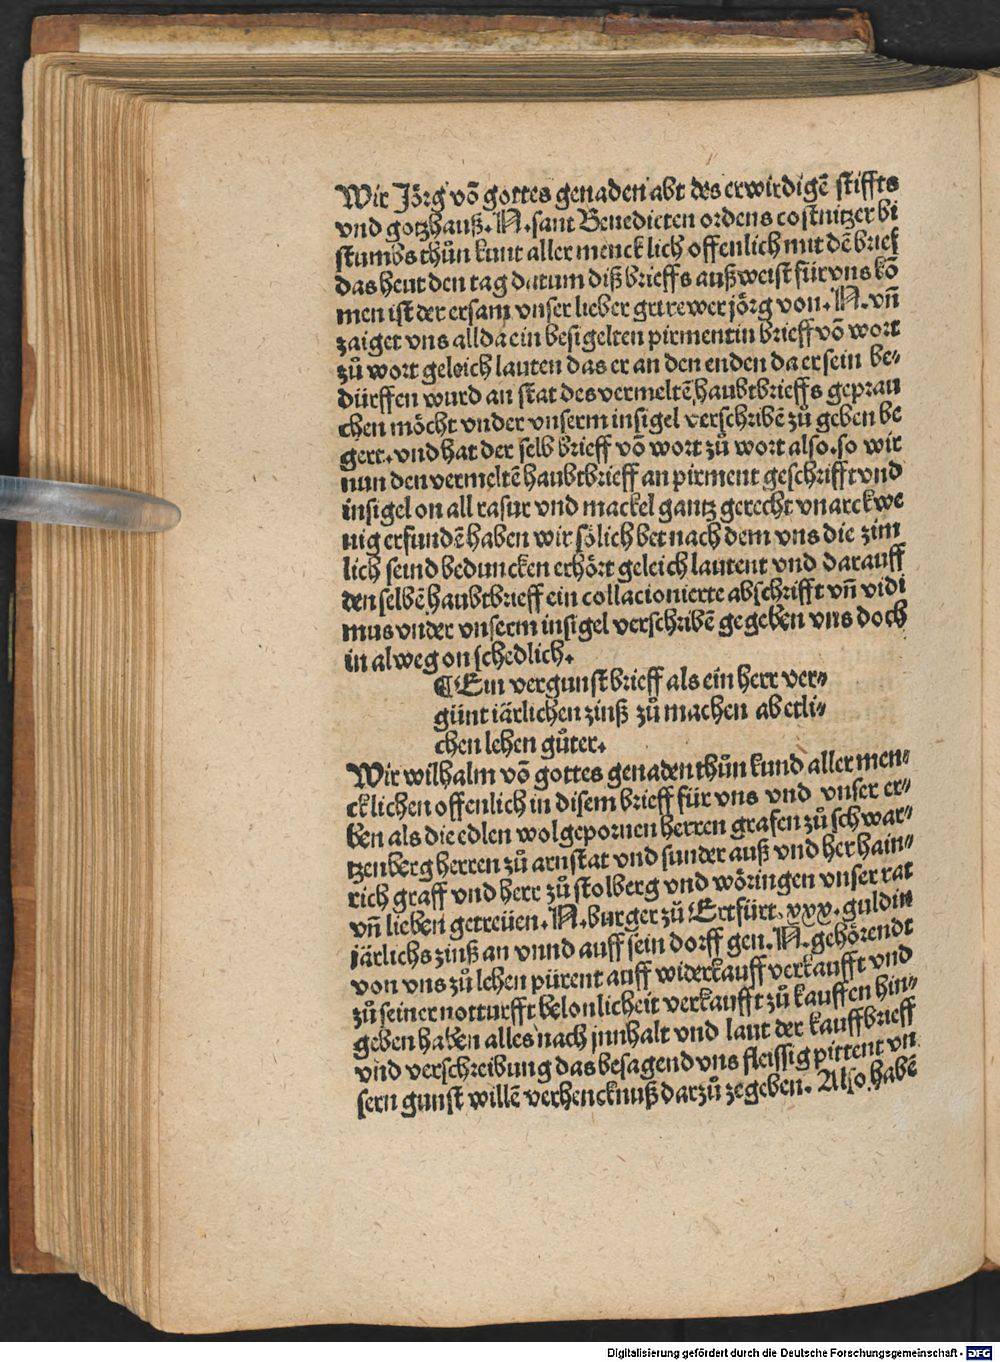 Wir Jörg võ gottes genaden abt des erwirdigẽ stiffts
vnd gotzhauß. N. sant Benedicten ordens costnitzer bi
stumbs thůn kunt aller menck lich offenlich mit dẽ brief
das heut den tag datum diß brieffs außweist für vns kõ
men ist der ersam vnser lieber getrewer jörg von. N. vñ
zaiget vns allda ein besigelten pirmentin brieff võ wort
zů wort geleich lauten das er an den enden da er sein be⸗
dürffen wurd an stat des vermeltẽ haubtbrieffs geprau
chen möcht vnder vnserm insigel verschribẽ zů geben be
gert. vnd hat der selb brieff võ wort zů wort also. so wir
nun den vermeltẽ haubtbrieff an pirment geschrifft vnd
insigel on all rasur vnd mackel gantz gerecht vnarckwe
nig erfundẽ haben wir sölich bet nach dem vns die zim
lich seind beduncken erhört geleich lautent vnd darauff
den selbẽ haubtbrieff ein collacionierte abschrifft vñ vidi
mus vnder vnserm insigel verschribẽ gegeben vns doch
in alweg on schedlich.
¶ Ein vergunst brieff als ein herr ver⸗
günt iärlichen zinß zů machen ab etli⸗
chen lehen gůter.
Wir wilhalm võ gottes genaden thůn kund aller men⸗
cklichen offenlich in disem brieff für vns vnd vnser er⸗
ben als die edlen wolgepornen herren grafen zů schwar⸗
tzenberg herren zů arnstat vnd sunder auß vnd her hain⸗
rich graff vnd herr zů stolberg vnd wöringen vnser rat
vñ lieben getreüen. N. burger zů Ertfürt. xxx. guldin
järlichs zinß an vnnd auff sein dorff gen. N. gehörendt
von vns zů lehen pürent auff widerkauff verkaufft vnd
zů seiner notturfft belonlicheit verkaufft zů kauffen hin⸗
geben haben alles nach jnnhalt vnd laut der kauffbrieff
vnd verschreibung das besagend vns fleissig pittent vn
sern gunst willẽ verhencknuß darzů zegeben. Also habẽ
Digitalisierung gefördert durch die Deutsche Forschungsgemeinschaft - DFG